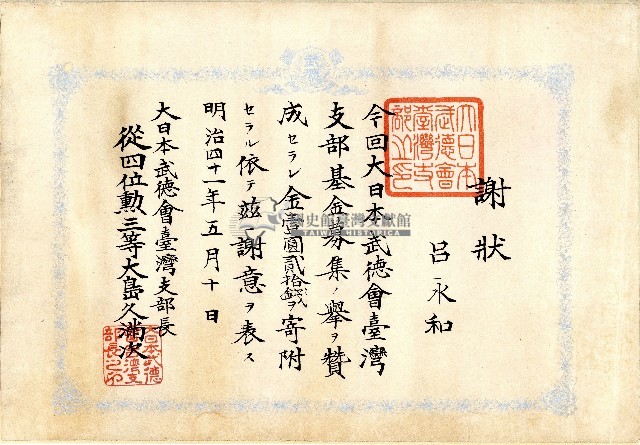 謝狀
呂永和
今回大日本武德會臺灣
支部基金募集ノ擧ヲ贊
成セラレ金壹圓貳拾錢ヲ寄附
セラル依テ茲ニ謝意ヲ表ス
明治四十一年五月十日
大日本武德會臺灣支部長
從四位勲三等大島久滿次
大日本
武德會
臺灣支
部之印
大日本武德
會臺灣支
部長之印
武德
國史館臺灣文獻館
TAIWAN HISTORICA